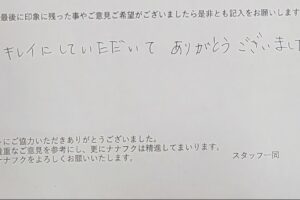 最後に印象に残った事やご意見ご希望がございましたら是非とも記入をお願いします
キレイにしていただいて ありがとうございまし
にご協力いただきありがとうございました。
貴重なご意見を参考にし、更にナナフクは精進してまいります。
ナナフクをよろしくお願いいたします。
スタッフ一同